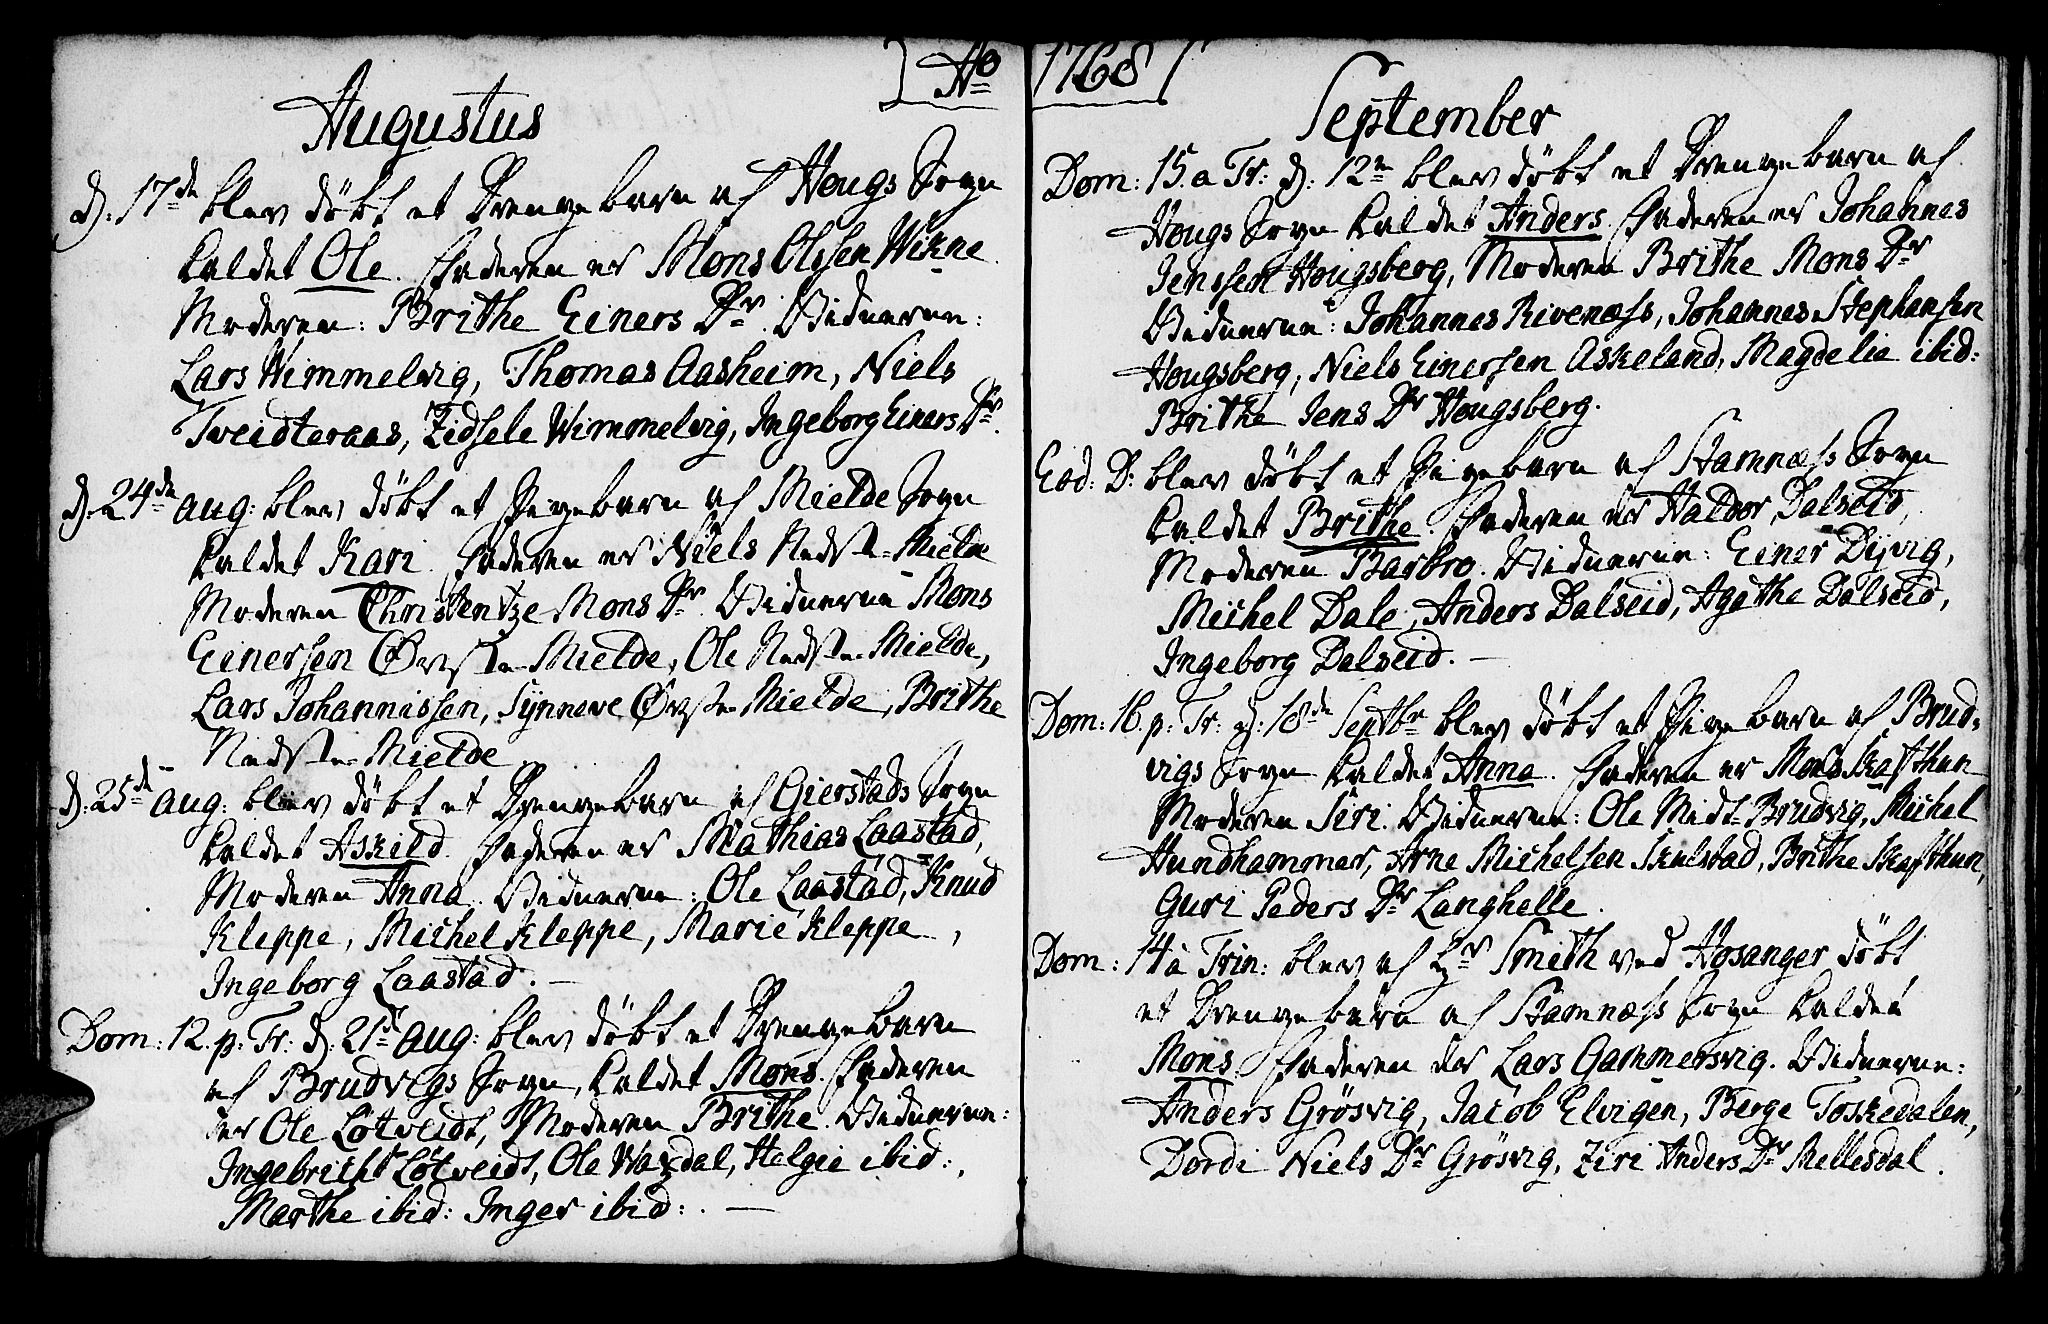 Ao 1768
Augustus
d. 17de blev døbt et Drengebarn af Hougs Sogn
kaldet Ole. Faderen er Mons Olssen Wikne
Moderen: Brithe Einers Dr. Vidnerne:
Lars Wimmelvig, Thomas Aasheim, Niels
Tveidteraas, Zidsele Wimmelvig, Ingeborg Einers Dr.
d. 24de Aug: blev døbt et Pigebarn af Mielde Sogn
kaldet Kari. Faderen er Niels Nedste Mielde
Moderen Christentze Mons Dr. Vidnerne Mons
Einersen Øvste Mielde, Ole Nedste Mielde,
Lars Johannissen, Synneve Øvste Mielde, Brithe
Nedste Mielde
d. 25de Aug: blev døbt et Drengebarn af Gierstads Sogn
kaldet Askild. Faderen er Mathias Laastad,
Moderen Anna. Vidnerne: Ole Laastad, Knud
Kleppe, Michel Kleppe, Marie Kleppe,
Ingeborg Laastad. —
Dom: 12. p: Tr: d. 21de Aug: blev døbt et Drengebarn
af Brudvigs Sogn, kaldet Mons. Faderen
er Ole Løtveidt, Moderen Brithe. Vidnerne:
Ingebricht Løtveidt, Ole Waxdal, Helgie ibid:,
Marthe ibid: Inger ibid:. —
September
Dom: 15. a Tr: d. 12te blev døbt et Drengebarn af
Hougs Sogn kaldet Anders. Faderen er Johannes
Jenssen Hougsberg, Moderen Brithe Mons Dr
Vidnerne: Johannes Rivenæss, Johannes Stephansen
Hougsberg, Niels Einersen Askeland, Magdelie ibid:
Brithe Jens Dr Hougsberg.
Eod: D: blev døbt et Pigebarn af Stamnæss Sogn
kaldet Brithe. Faderen er Haldor Dalseid,
Moderen Barbro. Vidnerne: Einer Dyvig,
Michel Dale, Anders Dalseid, Agathe Dalseid,
Ingeborg Dalseid. —
Dom: 16. p: Tr: d: 18de Septbr blev døbt et Pigebarn af Brud-
vigs Sogn kaldet Anna. Faderen er Mons Skafthun
Moderen Siri. Vidnerne: Ole Midt-Brudvig, Michel
Hundhammer, Arne Michelsen Skulstad, Brithe Skafthun,
Guri Peders Dr Langhelle.
Dom: 14 a Trin: blev af Hr Smith ved Hosanger døbt
et Drengebarn af Stamnæss Sogn kaldet
Mons. Faderen er Lars Gammersvig. Vidnerne:
Anders Grøsvig, Jacob Elvigen, Berge Toskedalen,
Dordi Niels Dr Grøsvig, Ziri Anders Dr Mellesdal.